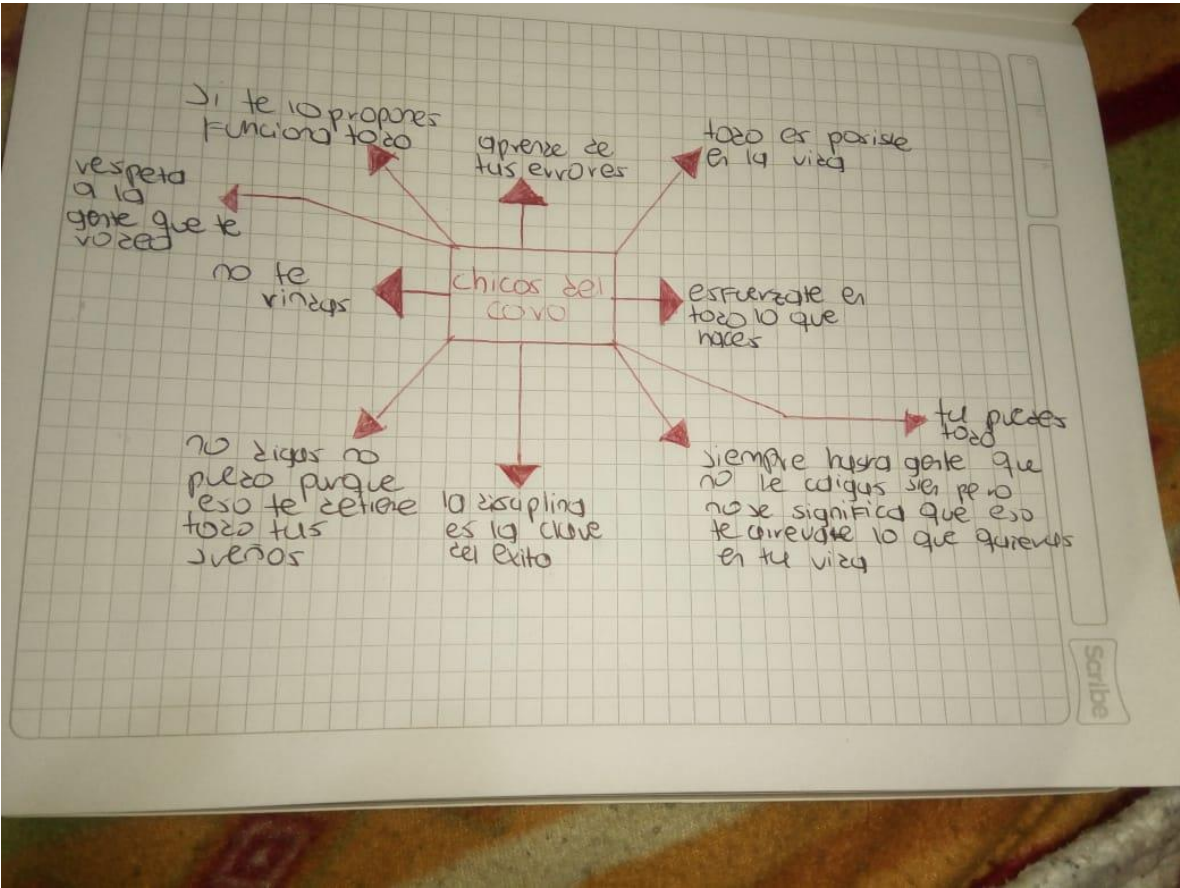 Si te lo propones
Funciona todo
aprende de
tus errores
todo es posible
en la vida
respeta
a la
gente que te
rodea
no te
rindas
chicos del
coro
esfuerzate en
todo lo que
haces
tu puedes
todo
no digas no
puedo porque
eso te detiene
todo tus
sueños
la disciplina
es la clave
del exito
siempre habra gente que
no le caigas bien pero
no se significa que eso
te lo que quieras
en tu vida
Scribe